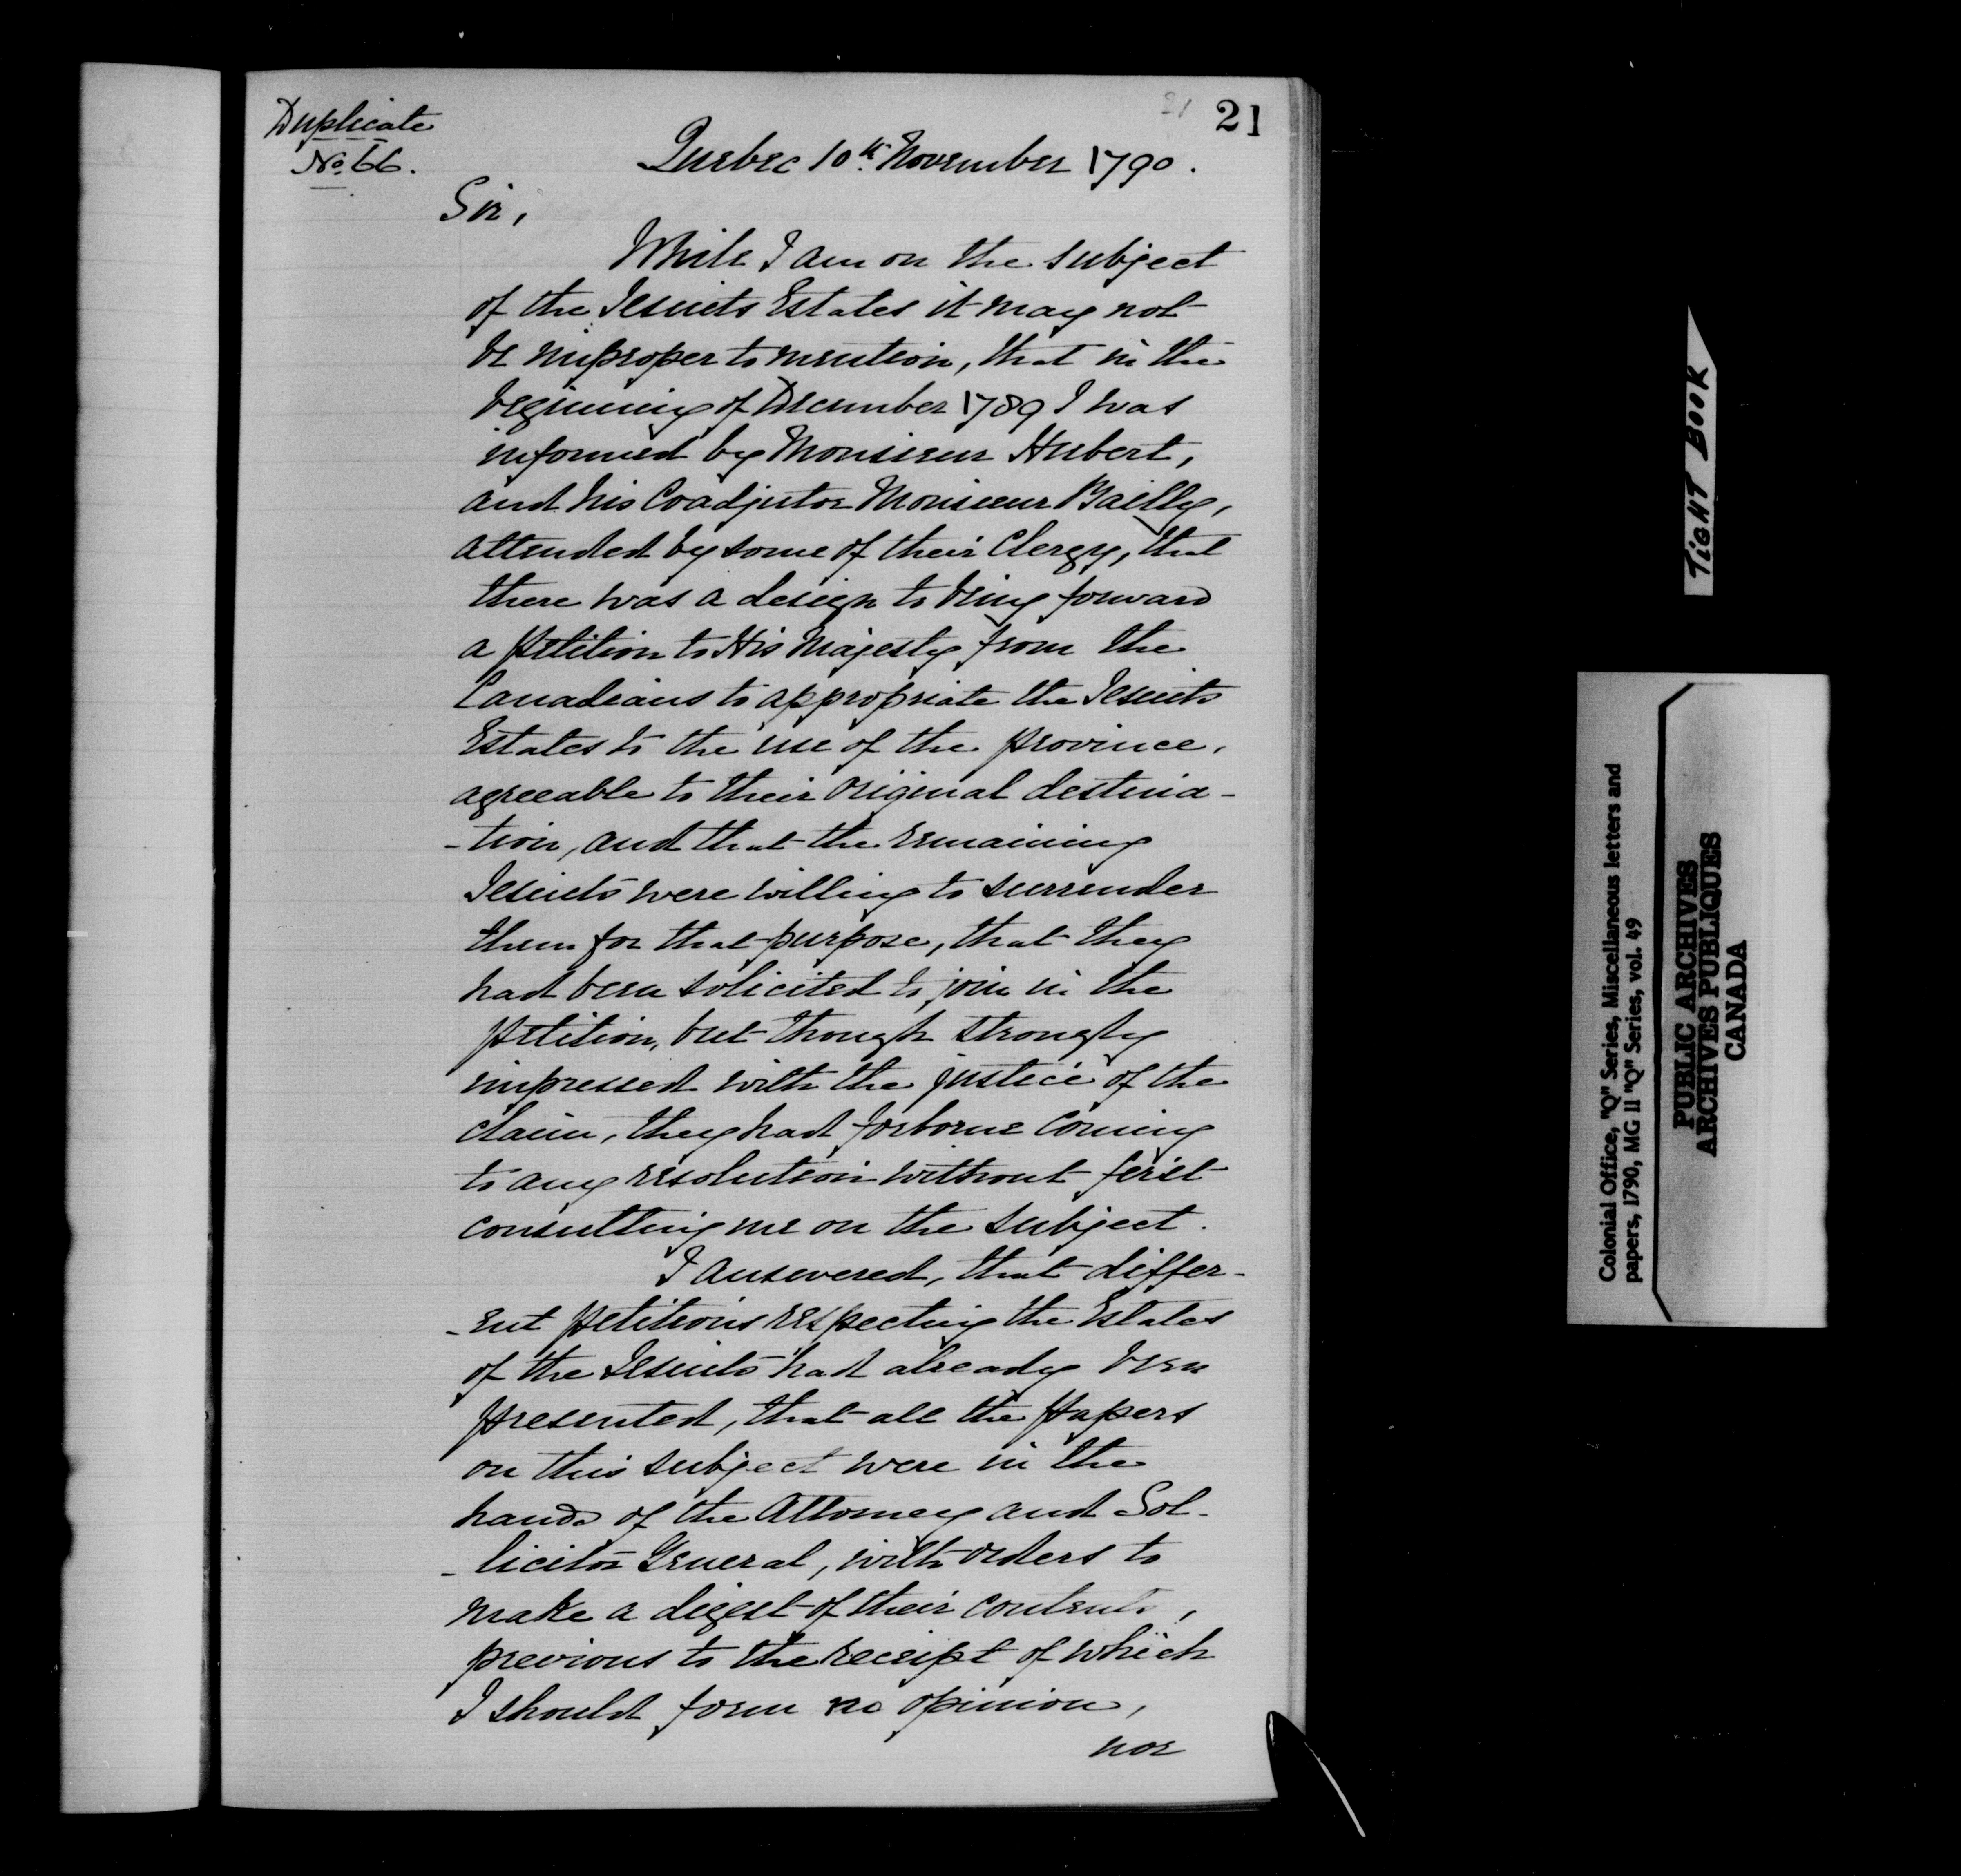 21
21
Duplicate
No. 66.
Quebec 10th November 1790.
Sir,
While I am on the subject
of the Jesuits Estates it may not
be improper to mention, that in the
beginning of December 1789 I was
informed by Monsieur Hubert,
and his Coadjutor Monsieur Bailly,
attended by some of their Clergy, that
there was a design to bring forward
a petition to His Majesty from the
Canadians to appropriate the Jesuits
Estates to the use of the province,
agreeable to their original destina-
-tion, and that the remaining
Jesuits were willing to surrender
them for that purpose, that they
had been solicited to join in the
petition, but though strongly
impressed with the justice of the
claim, they had forborne coming
to any resolution without first
consulting me on the subject.
I answered, that differ-
-ent petitions respecting the Estates
of the Jesuits had already been
presented, that all the papers
on this subject were in the
hands of the Attorney and Sol-
-licitor General, with orders to
make a digest of their contents,
previous to the receipt of which
I should form no opinion,
nor
TIGHT BOOK
Colonial Office, "Q" Series, Miscellaneous letters and
papers, 1790, MG 11 "Q" Series, vol. 49
PUBLIC ARCHIVES
ARCHIVES PUBLIQUES
CANADA